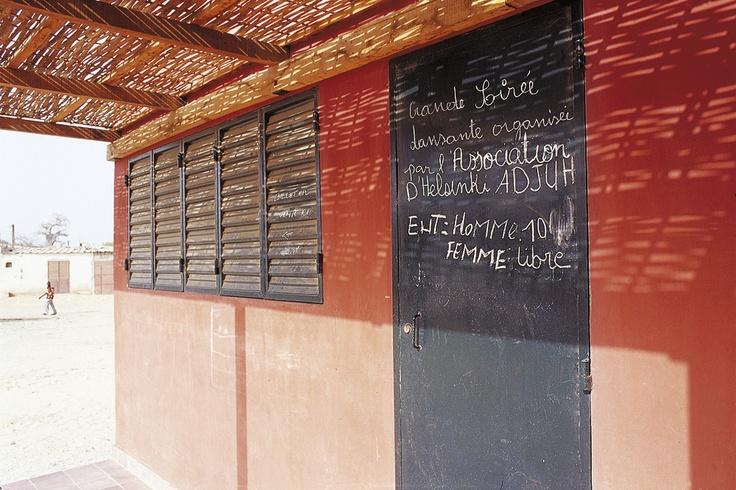 Grande Soirée
dansante organiseé
par l'Association
D'Helsinki ADJUH
ENT= HOMME 10
FEMME libre